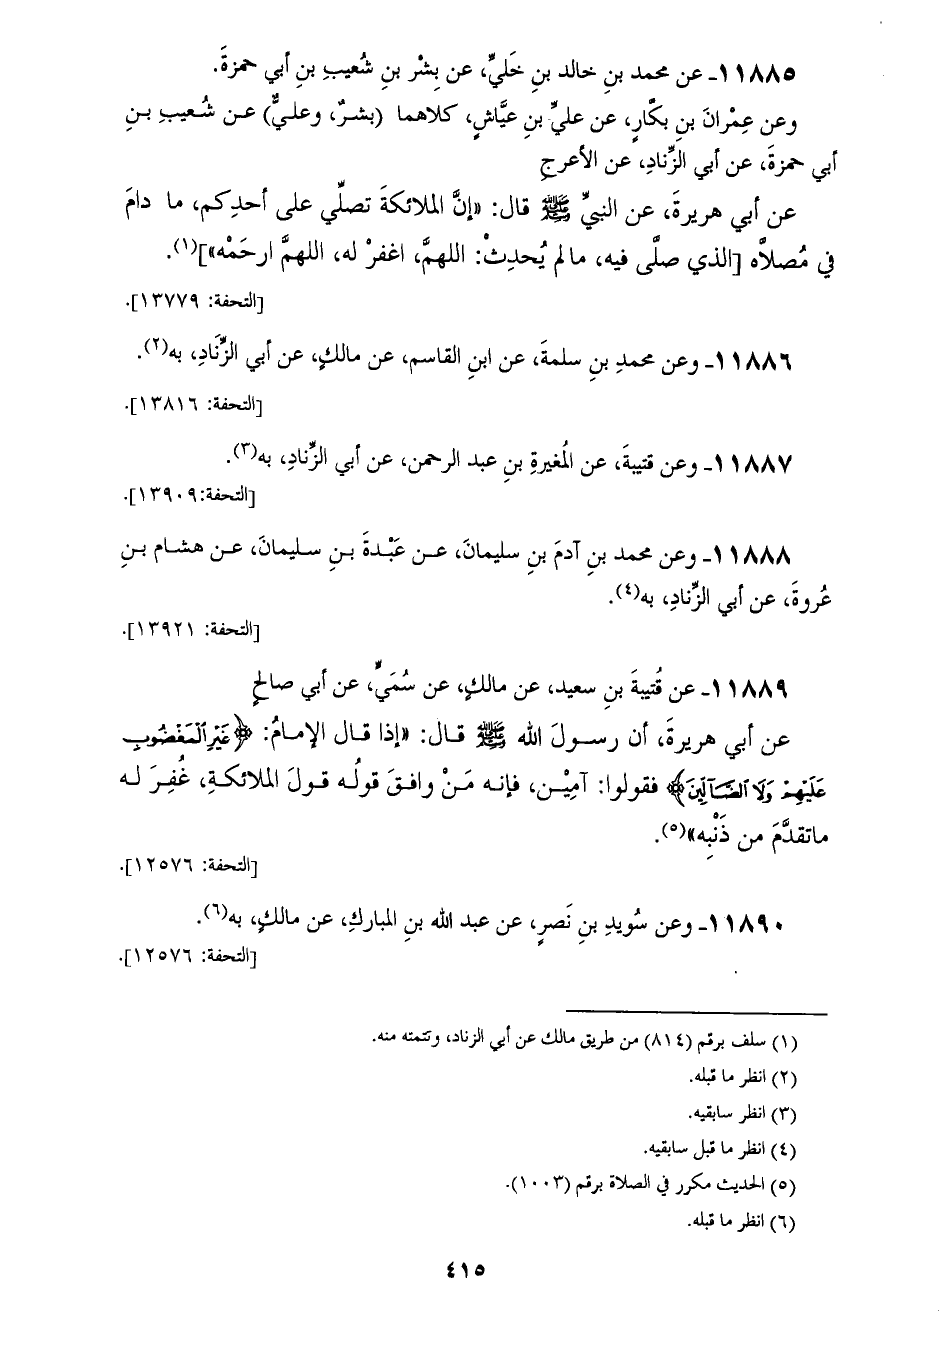 ١١٨٨٥ـ عن محمد بنِ خالد بنِ خَليٍّ، عن بِشْر بنِ شُعيبِ بنِ أبي حمزةَ.
وعن عِمْرانَ بنِ بكَّارٍ، عن عليِّ بنِ عيَّاشٍ، كلاهما (بشرٌ، وعليٌّ) عن شُعيبِ بنِ
أبي حمزةَ، عن أبي الزِّنادِ، عن الأعرجِ
عن أبي هريرةَ، عن النبيِّ ﷺ قال: «إنَّ الملائكةَ تصلِّي على أحدِكم، ما دامَ
في مُصلاَّه [الذي صلَّى فيه، مالم يُحدِثْ: اللهمَّ، اغفرْ له، اللهمَّ ارحَمْه»](١).
[التحفة: ١٣٧٧٩].
١١٨٨٦ـ وعن محمدِ بنِ سلمةَ، عن ابنِ القاسم، عن مالكٍ، عن أبي الزِّنَادِ، به(٢).
[التحفة: ١٣٨١٦].
١١٨٨٧ـ وعن قتيبةَ، عن المُغيرةِ بنِ عبد الرحمن، عن أبي الزِّنادِ، به(٣).
[التحفة:١٣٩٠٩].
١١٨٨٨ـ وعن محمد بنِ آدمَ بنِ سليمانَ، عن عَبْدةَ بنِ سليمانَ، عن هشام بنِ
عُروةَ، عن أبي الزِّنادِ، به(٤).
[التحفة: ١٣٩٢١].
١١٨٨٩ـ عن قُتيبةَ بنِ سعيد، عن مالكٍ، عن سُمَيٍّ، عن أبي صالحٍ
عن أبي هريرةَ، أن رسولَ الله ﷺ قال: «إذا قال الإمامُ: ﴿غَيْرِ ٱلْمَغْضُوبِ
عَلَيْهِمْ وَلَا ٱلضَّآلِّينَ﴾ فقولوا: آمِيْن، فإنه مَنْ وافقَ قولُه قولَ الملائكةِ، غُفِرَ له
ماتقدَّمَ من ذَنْبِه»(٥).
[التحفة: ١٢٥٧٦].
١١٨٩٠ـ وعن سُويدِ بنِ نَصرٍ، عن عبد الله بنِ المباركِ، عن مالكٍ، به(٦).
[التحفة: ١٢٥٧٦].
(١) سلف برقم (٨١٤) من طريق مالك عن أبي الزناد، وتتمته منه.
(٢) انظر ما قبله.
(٣) انظر سابقيه.
(٤) انظر ما قبل سابقيه.
(٥) الحديث مكرر في الصلاة برقم (١٠٠٣).
(٦) انظر ما قبله.
٤١٥